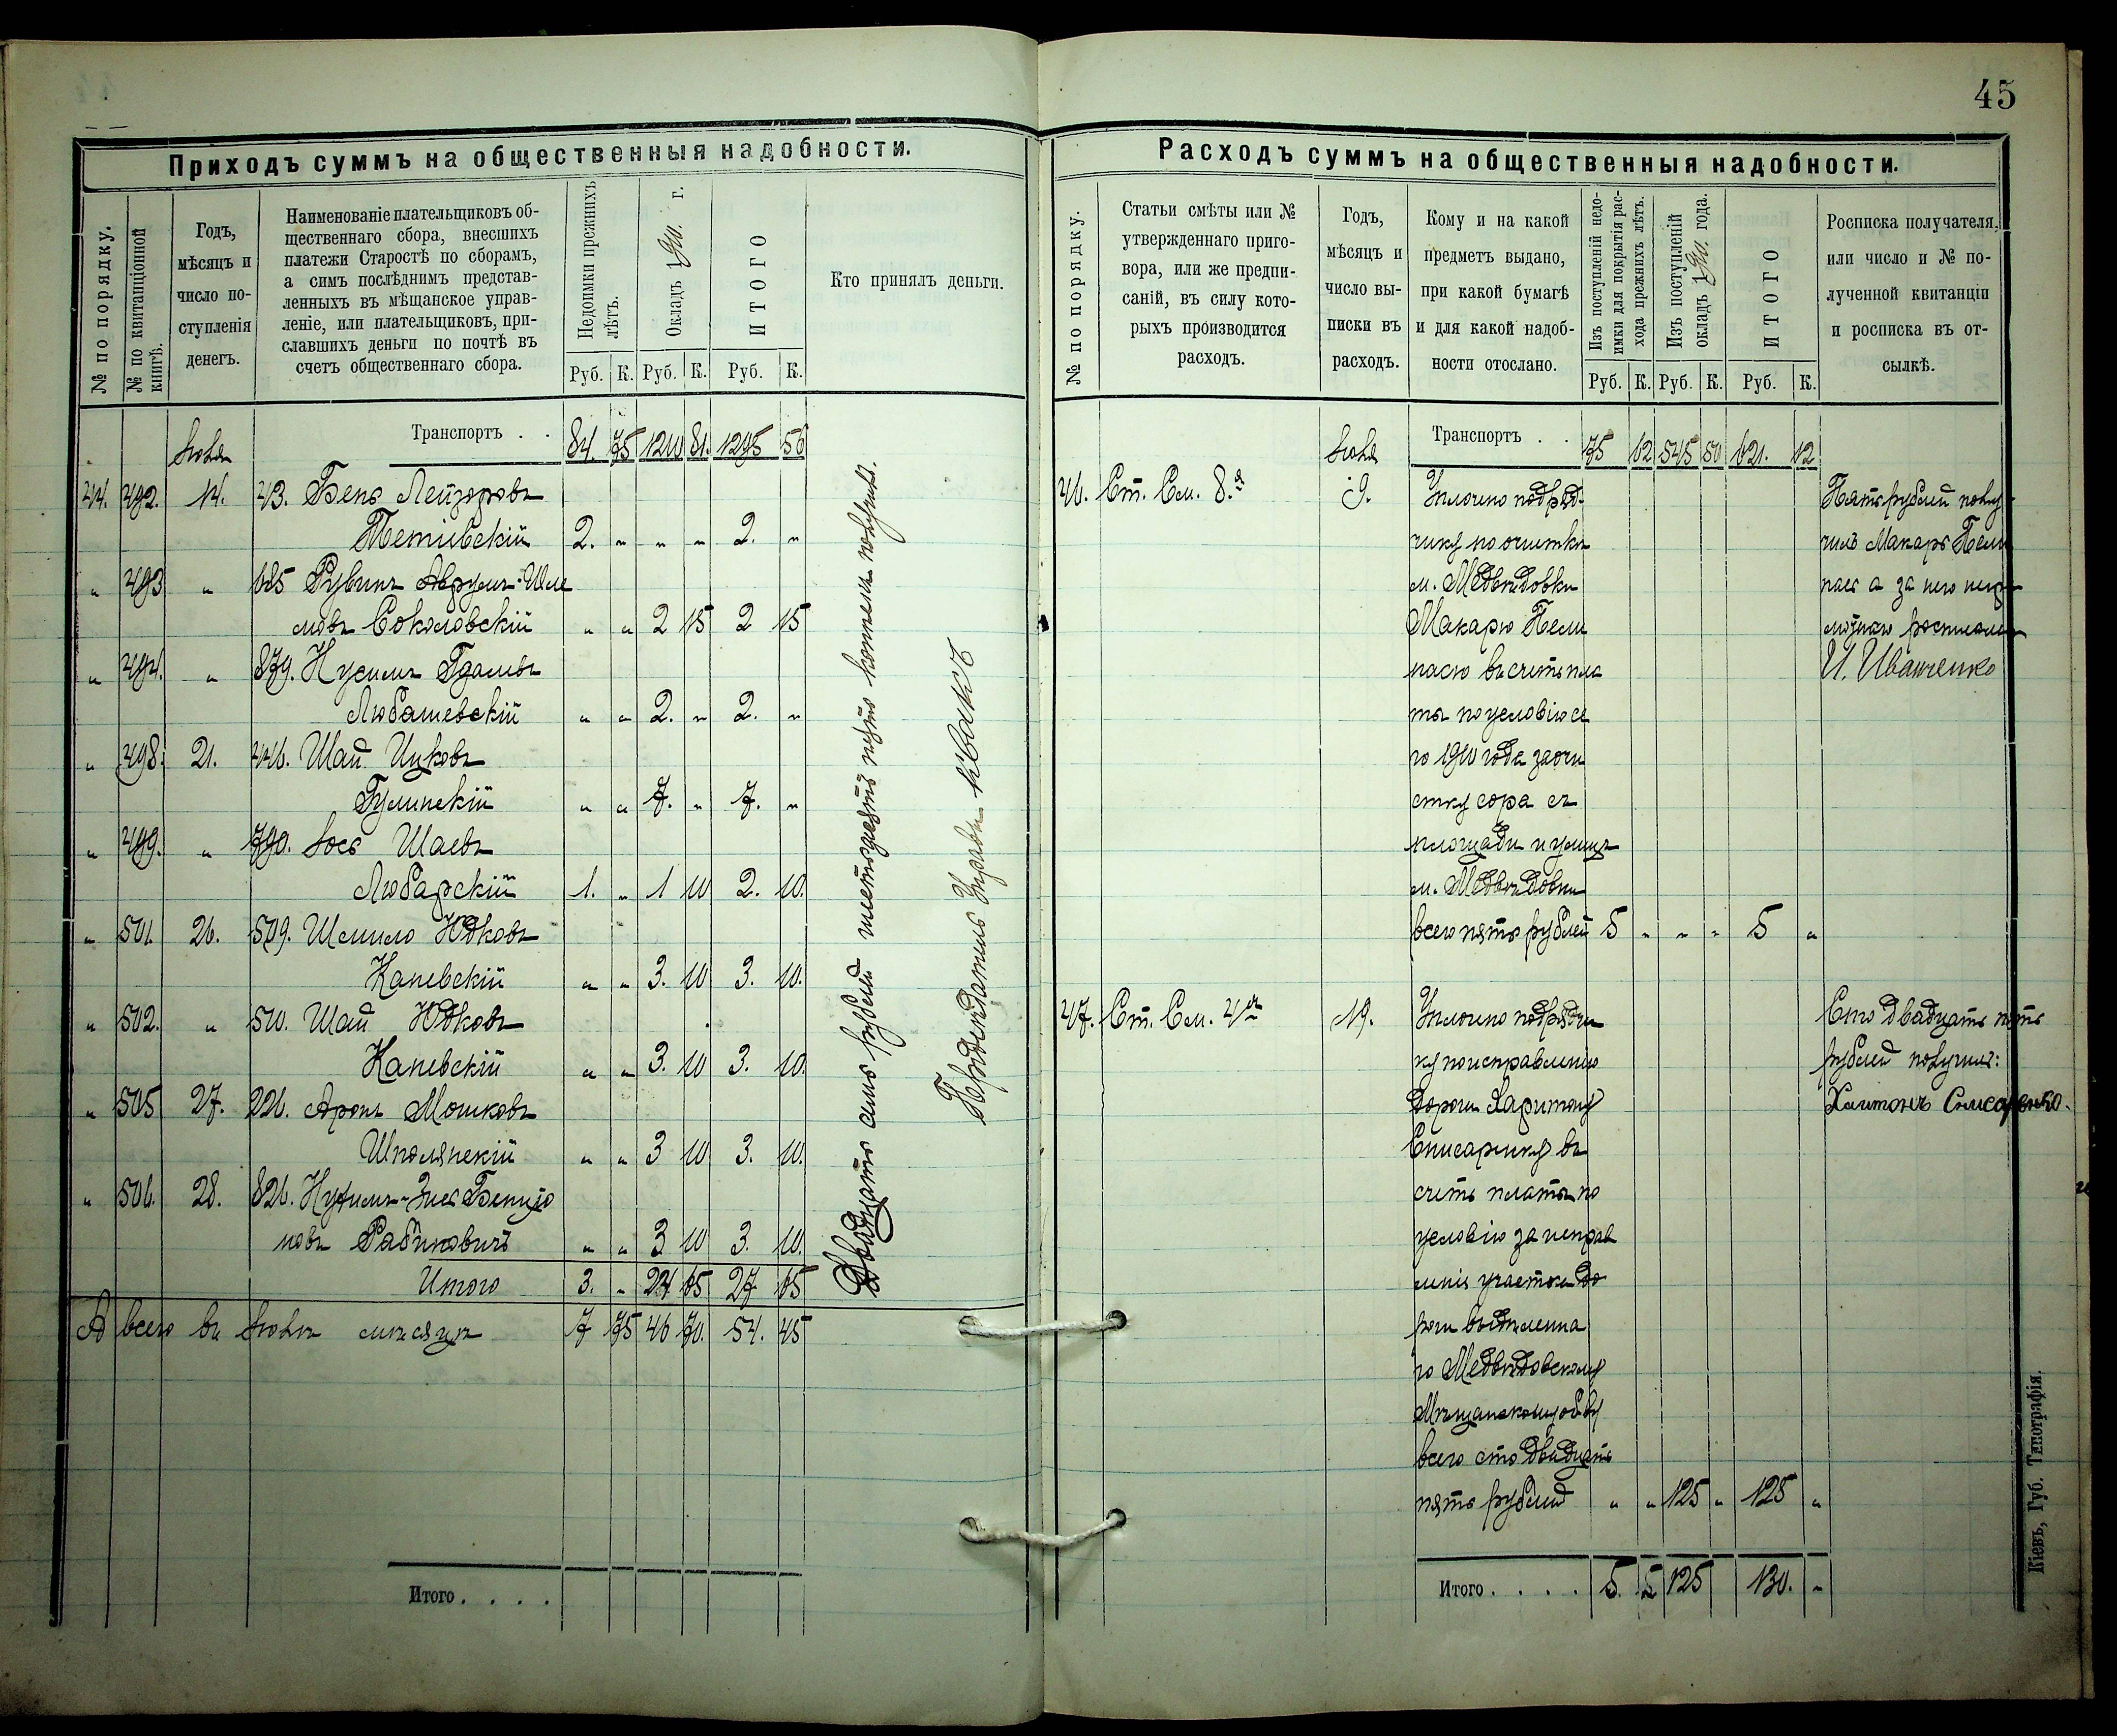 45
Приходъ суммъ на общественныя надобности.
№ по порядку.
№ по квитанціонной книгѣ.
Годъ,
мѣсяцъ и
число по-
ступленія
денегъ.
Наименованіе плательщиковъ об-
щественнаго сбора, внесшихъ
платежи Старостѣ по сборамъ,
а симъ послѣднимъ представ-
ленныхъ въ мѣщанское управ-
леніе, или плательщиковъ, при-
славшихъ деньги по почтѣ въ
счетъ общественнаго сбора.
Недоимки прежнихъ лѣтъ.
Окладъ 1910. г.
ИТОГО
Кто принялъ деньги.
Руб. К. Руб. К. Руб. К.
Іюля Транспортъ . . 84. 75 1210 81. 1295 56
44. 492. 14. 43. Бенъ Лейзоровъ
Тетіевскій 2. " " " 2. "
" 493 " 685 Рувинъ Аврумъ-Шле
мовъ Соколовскій " " 2 15 2 15
" 494. " 879. Нусимъ Гдалевъ
Любашевскій " " 2. " 2. "
" 498. 21. 446. Шай Ицковъ
Гулинскій " " 7. " 7. "
" 499. " 790. Іось Шаевъ
Любарскій 1. " 1 10 2. 10.
" 501. 26. 509. Шмило Юдковъ
Каневскій " " 3. 10 3. 10.
" 502. " 510. Шай Юдковъ
Каневскій " " 3. 10 3. 10.
" 505 27. 226. Аронъ Мошковъ
Шполянскій " " 3 10 3. 10.
" 506. 28. 826. Нухимъ-Зись Беніо
новъ Рабиновичъ " " 3 10 3. 10.
Итого 3. " 24 65 27 65
А всего въ Іюлѣ мѣсяцѣ 7 75 46 70. 54. 45
Двадцать семь рублей шестьдесятъ пять копѣекъ получилъ.
Кандидатъ Управы
Итого . . . .
Расходъ суммъ на общественныя надобности.
№ по порядку.
Статьи смѣты или №
утвержденнаго приго-
вора, или же предпи-
саній, въ силу кото-
рыхъ производится
расходъ.
Годъ,
мѣсяцъ и
число вы-
писки въ
расходъ.
Кому и на какой
предметъ выдано,
при какой бумагѣ
и для какой надоб-
ности отослано.
Изъ поступленій недо-
имки для покрытія рас-
хода прежнихъ лѣтъ.
Изъ поступленій
окладъ 1910. года.
ИТОГО
Росписка получателя,
или число и № по-
лученной квитанціи
и росписка въ от-
сылкѣ.
Руб. К. Руб. К. Руб. К.
Іюля Транспортъ . . 75 62 545 50 621. 12
46. Ст. См. 8.я 9. Уплочено подряд-
чику по очистки
м. Медвѣдовки
Макарю Пели
пасю въ счетъ пла
ты по условію се
го 1910 года за очи
стку сора съ
площади и улицъ
м. Медвѣдовки
всего пять рублей 5 " " " 5 "
Пять рублей полу-
чилъ Макаръ Пели
пась а за него негра
мотнаго росписался
И. Иваненко
47. Ст. См. 4я 19. Уплочено подрядчи
ку по исправленію
дороги Харитону
Слисаренку въ
счетъ платы по
условію за исправ
леніе участка до
роги выдѣленна
го Медвѣдовскому
Мѣщанскому об-ву
всего сто двадцать
пять рублей " " 125 " 125 "
Сто двадцать пять
рублей получилъ:
Харитонъ Слисаренко.
Итого . . . . 5. " 125 130. "
Кіевъ, Губ. Типографія.